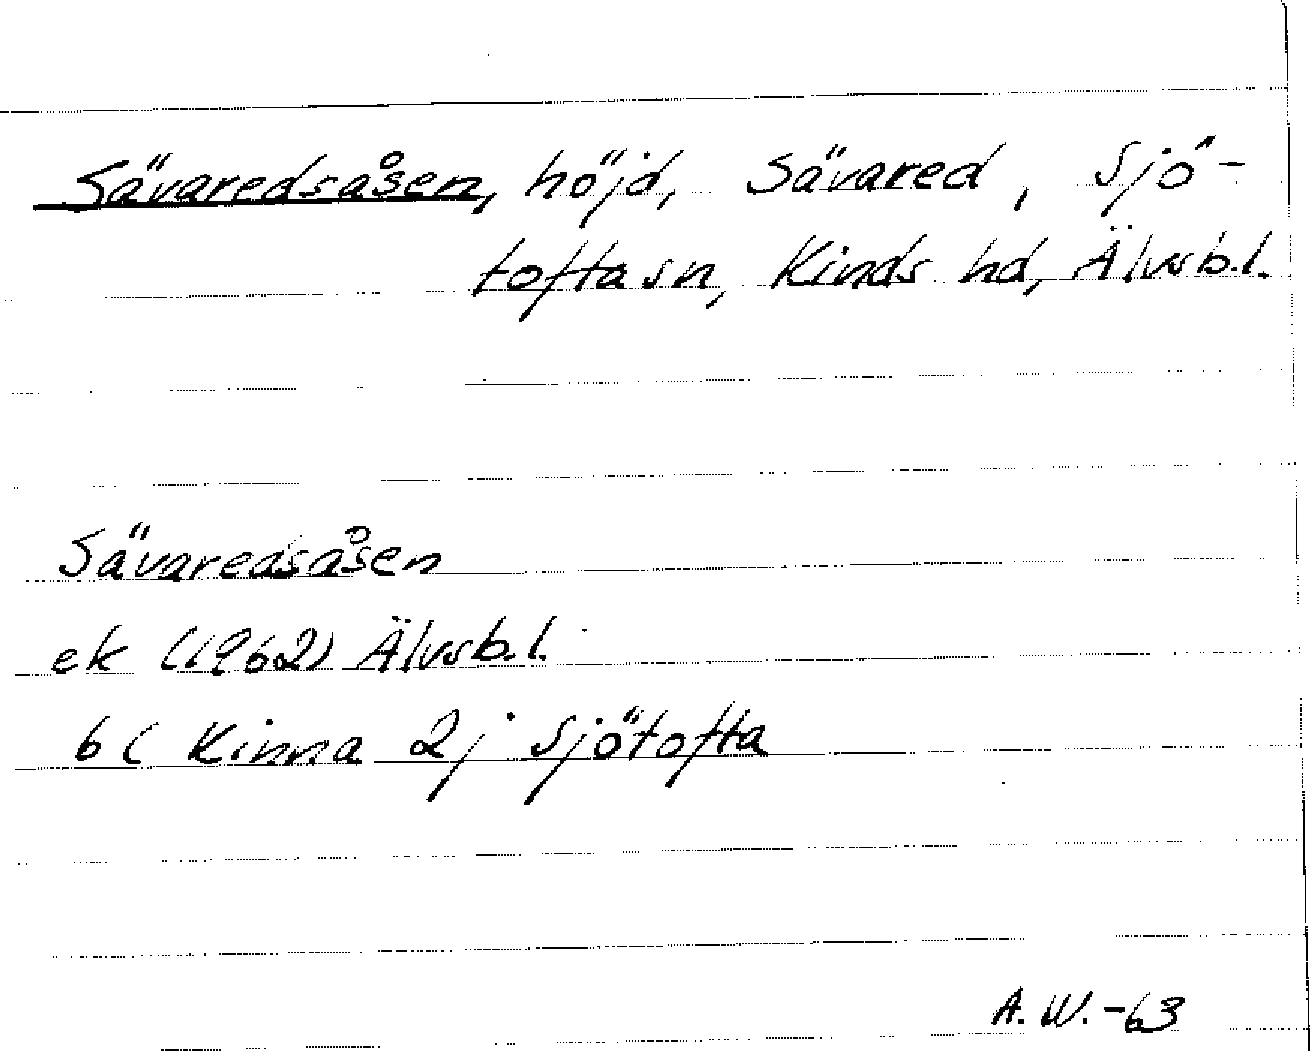 Sävaredsåsen, höjd, Sävared, Sjö-
toftasn, Kinds hd, Älvsb.l.
Sävaredsåsen
ek (1962) Älvsb.l.
6C Kinna 2j Sjötofta
A.W.-63